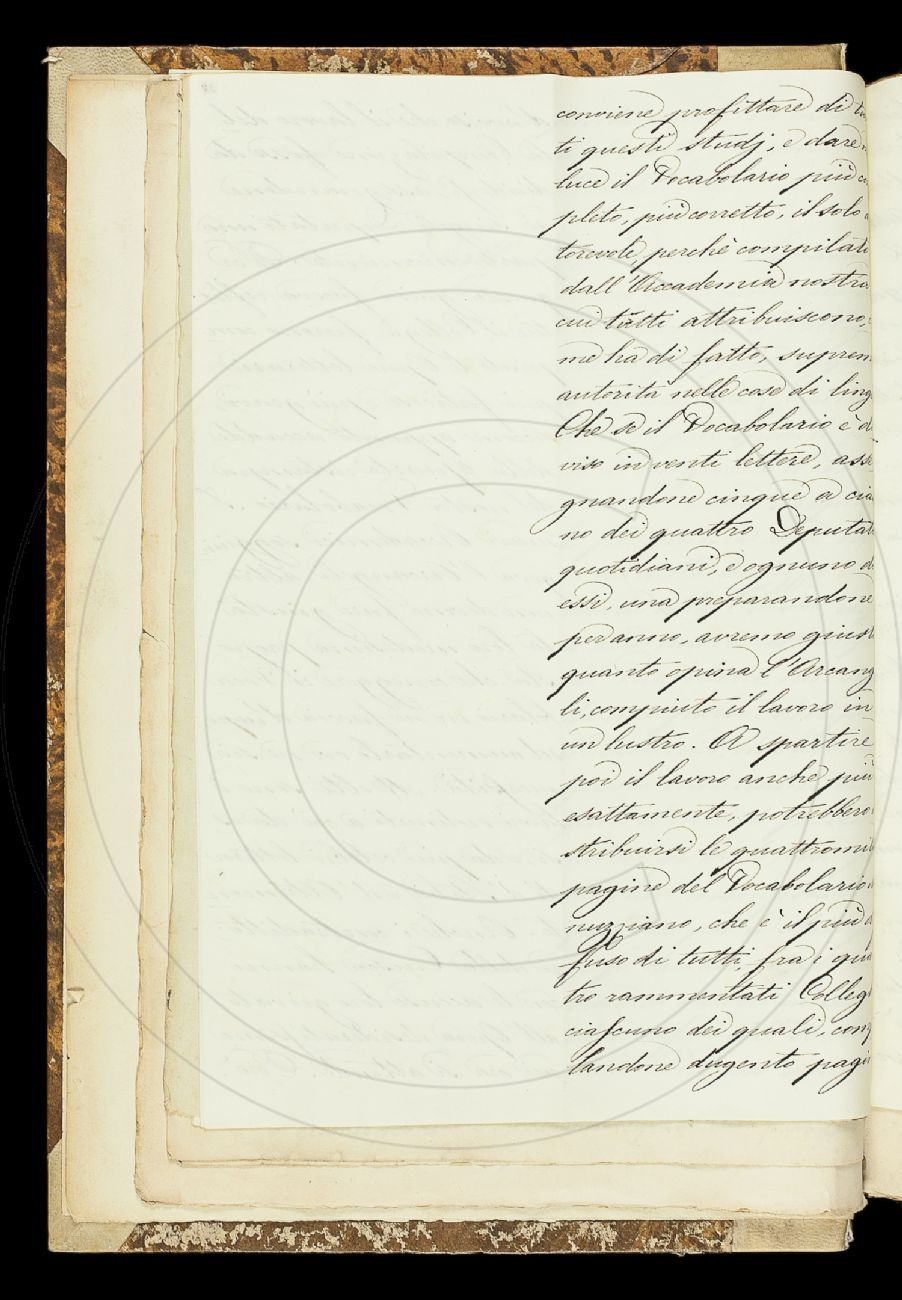 conviene profittare di tu
ti questi studj, e dare
luce il Vocabolario più co
pleto, più corretto, il solo
torevole, perchè compilato
dall'Accademia nostra
cui tutti attribuiscono,
me ha di fatto, suprem
autorità nelle cose di ling
Che se il Vocabolario è d
viso in venti lettere, asse
gnandone cinque a cia
no dei quattro Deputat
quotidiani, e ognuno d
essi, una preparandone
per anno, avremo giust
quanto opina l'Arcang
li, compiuto il lavoro in
un lustro. A spartire
poi il lavoro anche più
esattamente, potrebbero
stribuirsi le quattromil
pagine del Vocabolario
nuzziano, che è il più d
fuso di tutti, fra i qua
tro rammentati Colleg
ciascuno dei quali, comp
landone dugento pagi